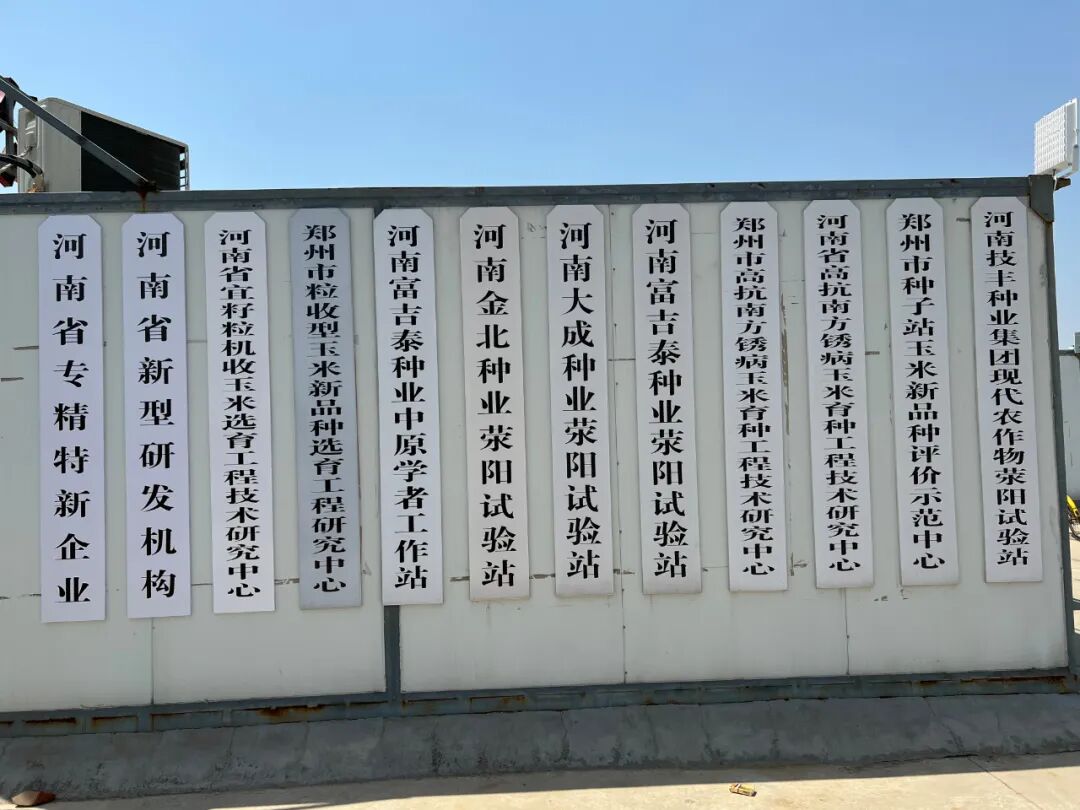 河南省专精特新企业
河南省新型研发机构
河南省宜籽粒机收玉米选育工程技术研究中心
郑州市粒收型玉米新品种选育工程研究中心
河南富吉泰种业中原学者工作站
河南金北种业荥阳试验站
河南大成种业荥阳试验站
河南富吉泰种业荥阳试验站
郑州市高抗南方锈病玉米育种工程技术研究中心
河南省高抗南方锈病玉米育种工程技术研究中心
郑州市种子站玉米新品种评价示范中心
河南技丰种业集团现代农作物荥阳试验站